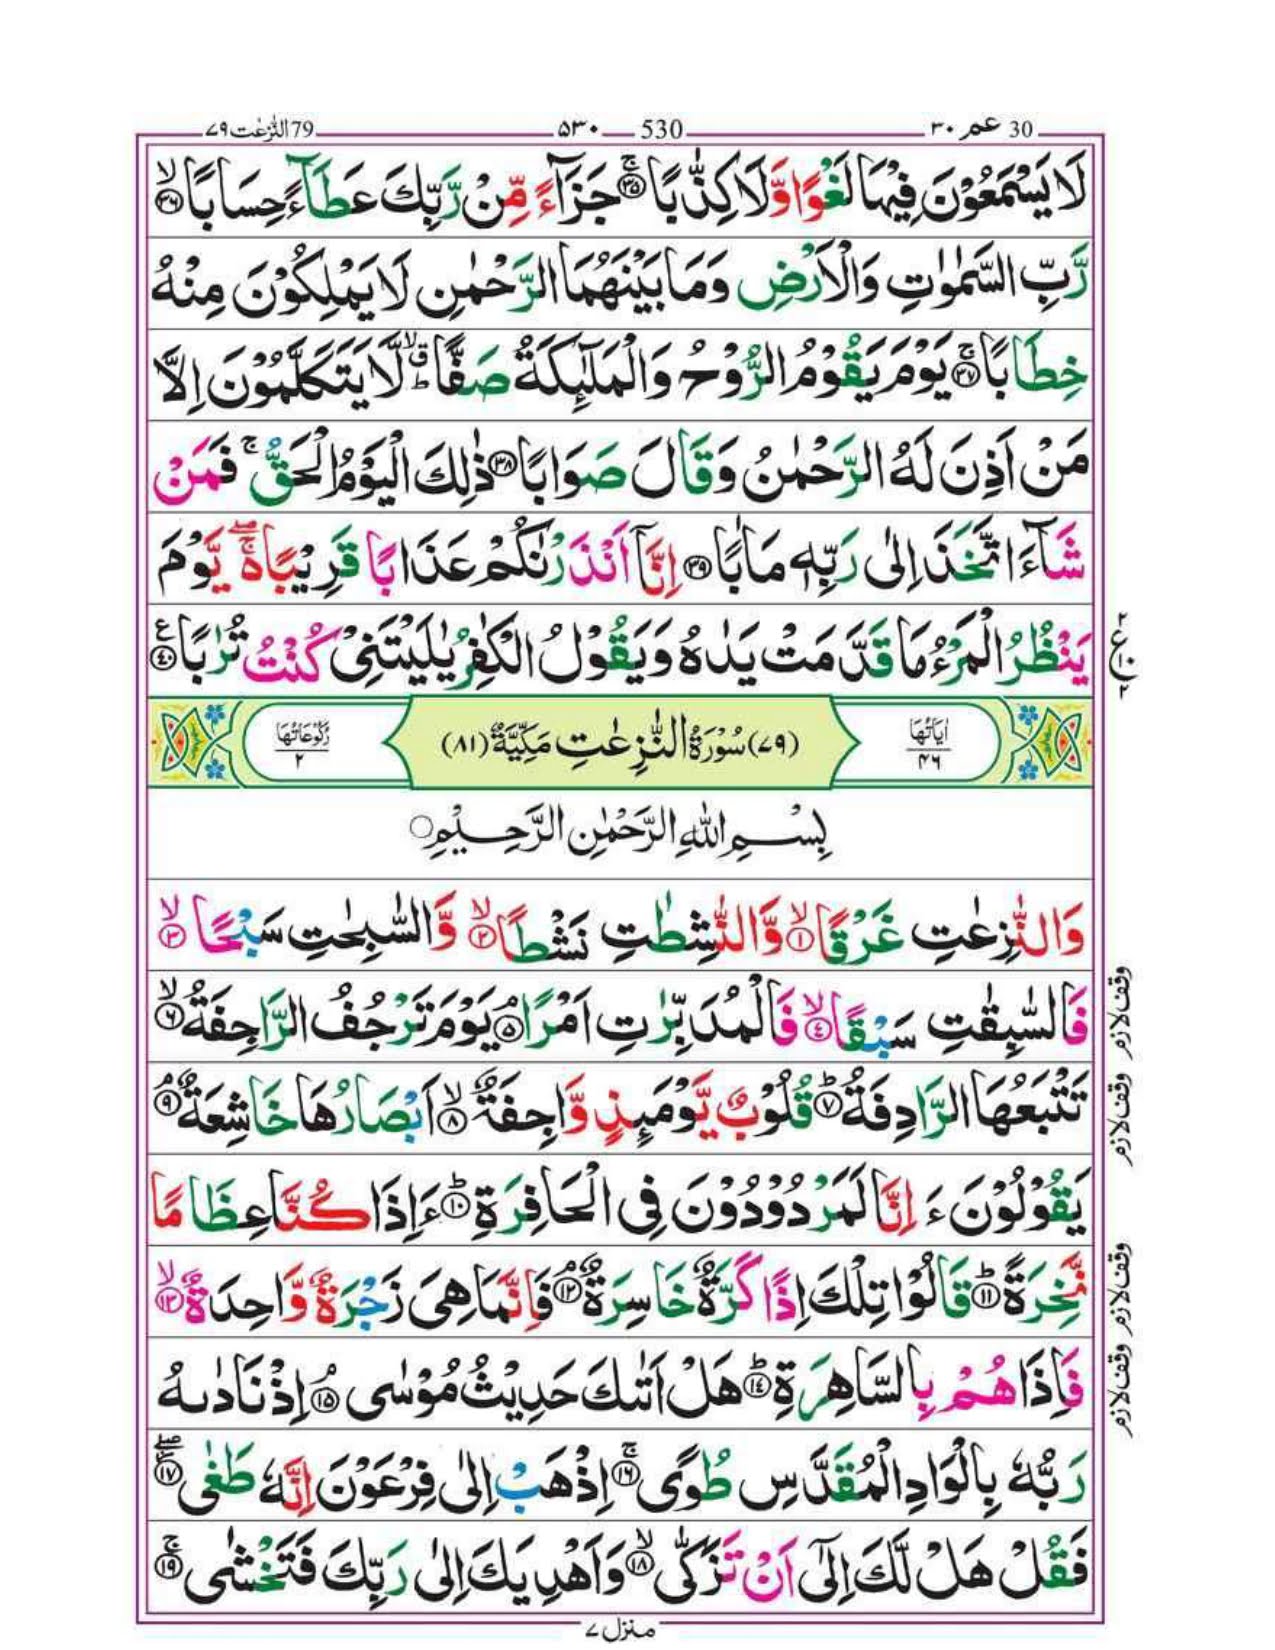 30 عم ۳۰
530 ۵۳۰
79 النّٰزعٰت ۷۹
لَا يَسْمَعُوْنَ فِيْهَا لَغْوًا وَّلَا كِذّٰبًا ۚ‏﴿۳۵﴾ جَزَآءً مِّنْ رَّبِّكَ عَطَآءً حِسَابًا ۙ‏﴿۳۶﴾
رَّبِّ السَّمٰوٰتِ وَالْاَرْضِ وَمَا بَيْنَهُمَا الرَّحْمٰنِ لَا يَمْلِكُوْنَ مِنْهُ
خِطَابًا ۚ‏﴿۳۷﴾ يَوْمَ يَقُوْمُ الرُّوْحُ وَالْمَلٰٓئِكَةُ صَفًّا ؕۙ لَّا يَتَكَلَّمُوْنَ اِلَّا
مَنْ اَذِنَ لَهُ الرَّحْمٰنُ وَقَالَ صَوَابًا ﴿۳۸﴾ ذٰلِكَ الْيَوْمُ الْحَقُّ ۚ فَمَنْ
شَآءَ اتَّخَذَ اِلٰى رَبِّهٖ مَاٰبًا ﴿۳۹﴾ اِنَّاۤ اَنْذَرْنٰكُمْ عَذَابًا قَرِيْبًا ۬ۚۖ يَّوْمَ
يَنْظُرُ الْمَرْءُ مَا قَدَّمَتْ يَدٰهُ وَيَقُوْلُ الْكٰفِرُ يٰلَيْتَنِىْ كُنْتُ تُرٰبًا ﴿۴۰﴾
۲ ع ۱۰ ۲
اٰيَاتُهَا ۴۶
(۷۹) سُوْرَةُ النّٰزِعٰتِ مَكِّيَّةٌ (۸۱)
رُكُوْعَاتُهَا ۲
بِسْمِ اللّٰهِ الرَّحْمٰنِ الرَّحِيْمِ ○
وَالنّٰزِعٰتِ غَرْقًا ۙ‏﴿۱﴾ وَّالنّٰشِطٰتِ نَشْطًا ۙ‏﴿۲﴾ وَّالسّٰبِحٰتِ سَبْحًا ۙ‏﴿۳﴾
فَالسّٰبِقٰتِ سَبْقًا ۙ‏﴿۴﴾ فَالْمُدَبِّرٰتِ اَمْرًا ۘ‏﴿۵﴾ يَوْمَ تَرْجُفُ الرَّاجِفَةُ ۙ‏﴿۶﴾
وقف لازم
تَتْبَعُهَا الرَّادِفَةُ ؕ‏﴿۷﴾ قُلُوْبٌ يَّوْمَئِذٍ وَّاجِفَةٌ ۙ‏﴿۸﴾ اَبْصَارُهَا خَاشِعَةٌ ۘ‏﴿۹﴾
وقف لازم
يَقُوْلُوْنَ ءَ اِنَّا لَمَرْدُوْدُوْنَ فِى الْحَافِرَةِ ؕ‏﴿۱۰﴾ ءَ اِذَا كُنَّا عِظَامًا
نَّخِرَةً ؕ‏﴿۱۱﴾ قَالُوْا تِلْكَ اِذًا كَرَّةٌ خَاسِرَةٌ ۘ‏﴿۱۲﴾ فَاِنَّمَا هِىَ زَجْرَةٌ وَّاحِدَةٌ ۙ‏﴿۱۳﴾
وقف لازم
فَاِذَا هُمْ بِالسَّاهِرَةِ ؕ‏﴿۱۴﴾ هَلْ اَتٰٮكَ حَدِيْثُ مُوْسٰى ۘ‏﴿۱۵﴾ اِذْ نَادٰٮهُ
وقف لازم
رَبُّهٗ بِالْوَادِ الْمُقَدَّسِ طُوًى ۚ‏﴿۱۶﴾ اِذْهَبْ اِلٰى فِرْعَوْنَ اِنَّهٗ طَغٰى ۖ‏﴿۱۷﴾
فَقُلْ هَلْ لَّكَ اِلٰٓى اَنْ تَزَكّٰى ۙ‏﴿۱۸﴾ وَاَهْدِيَكَ اِلٰى رَبِّكَ فَتَخْشٰى ۚ‏﴿۱۹﴾
منزل ۷